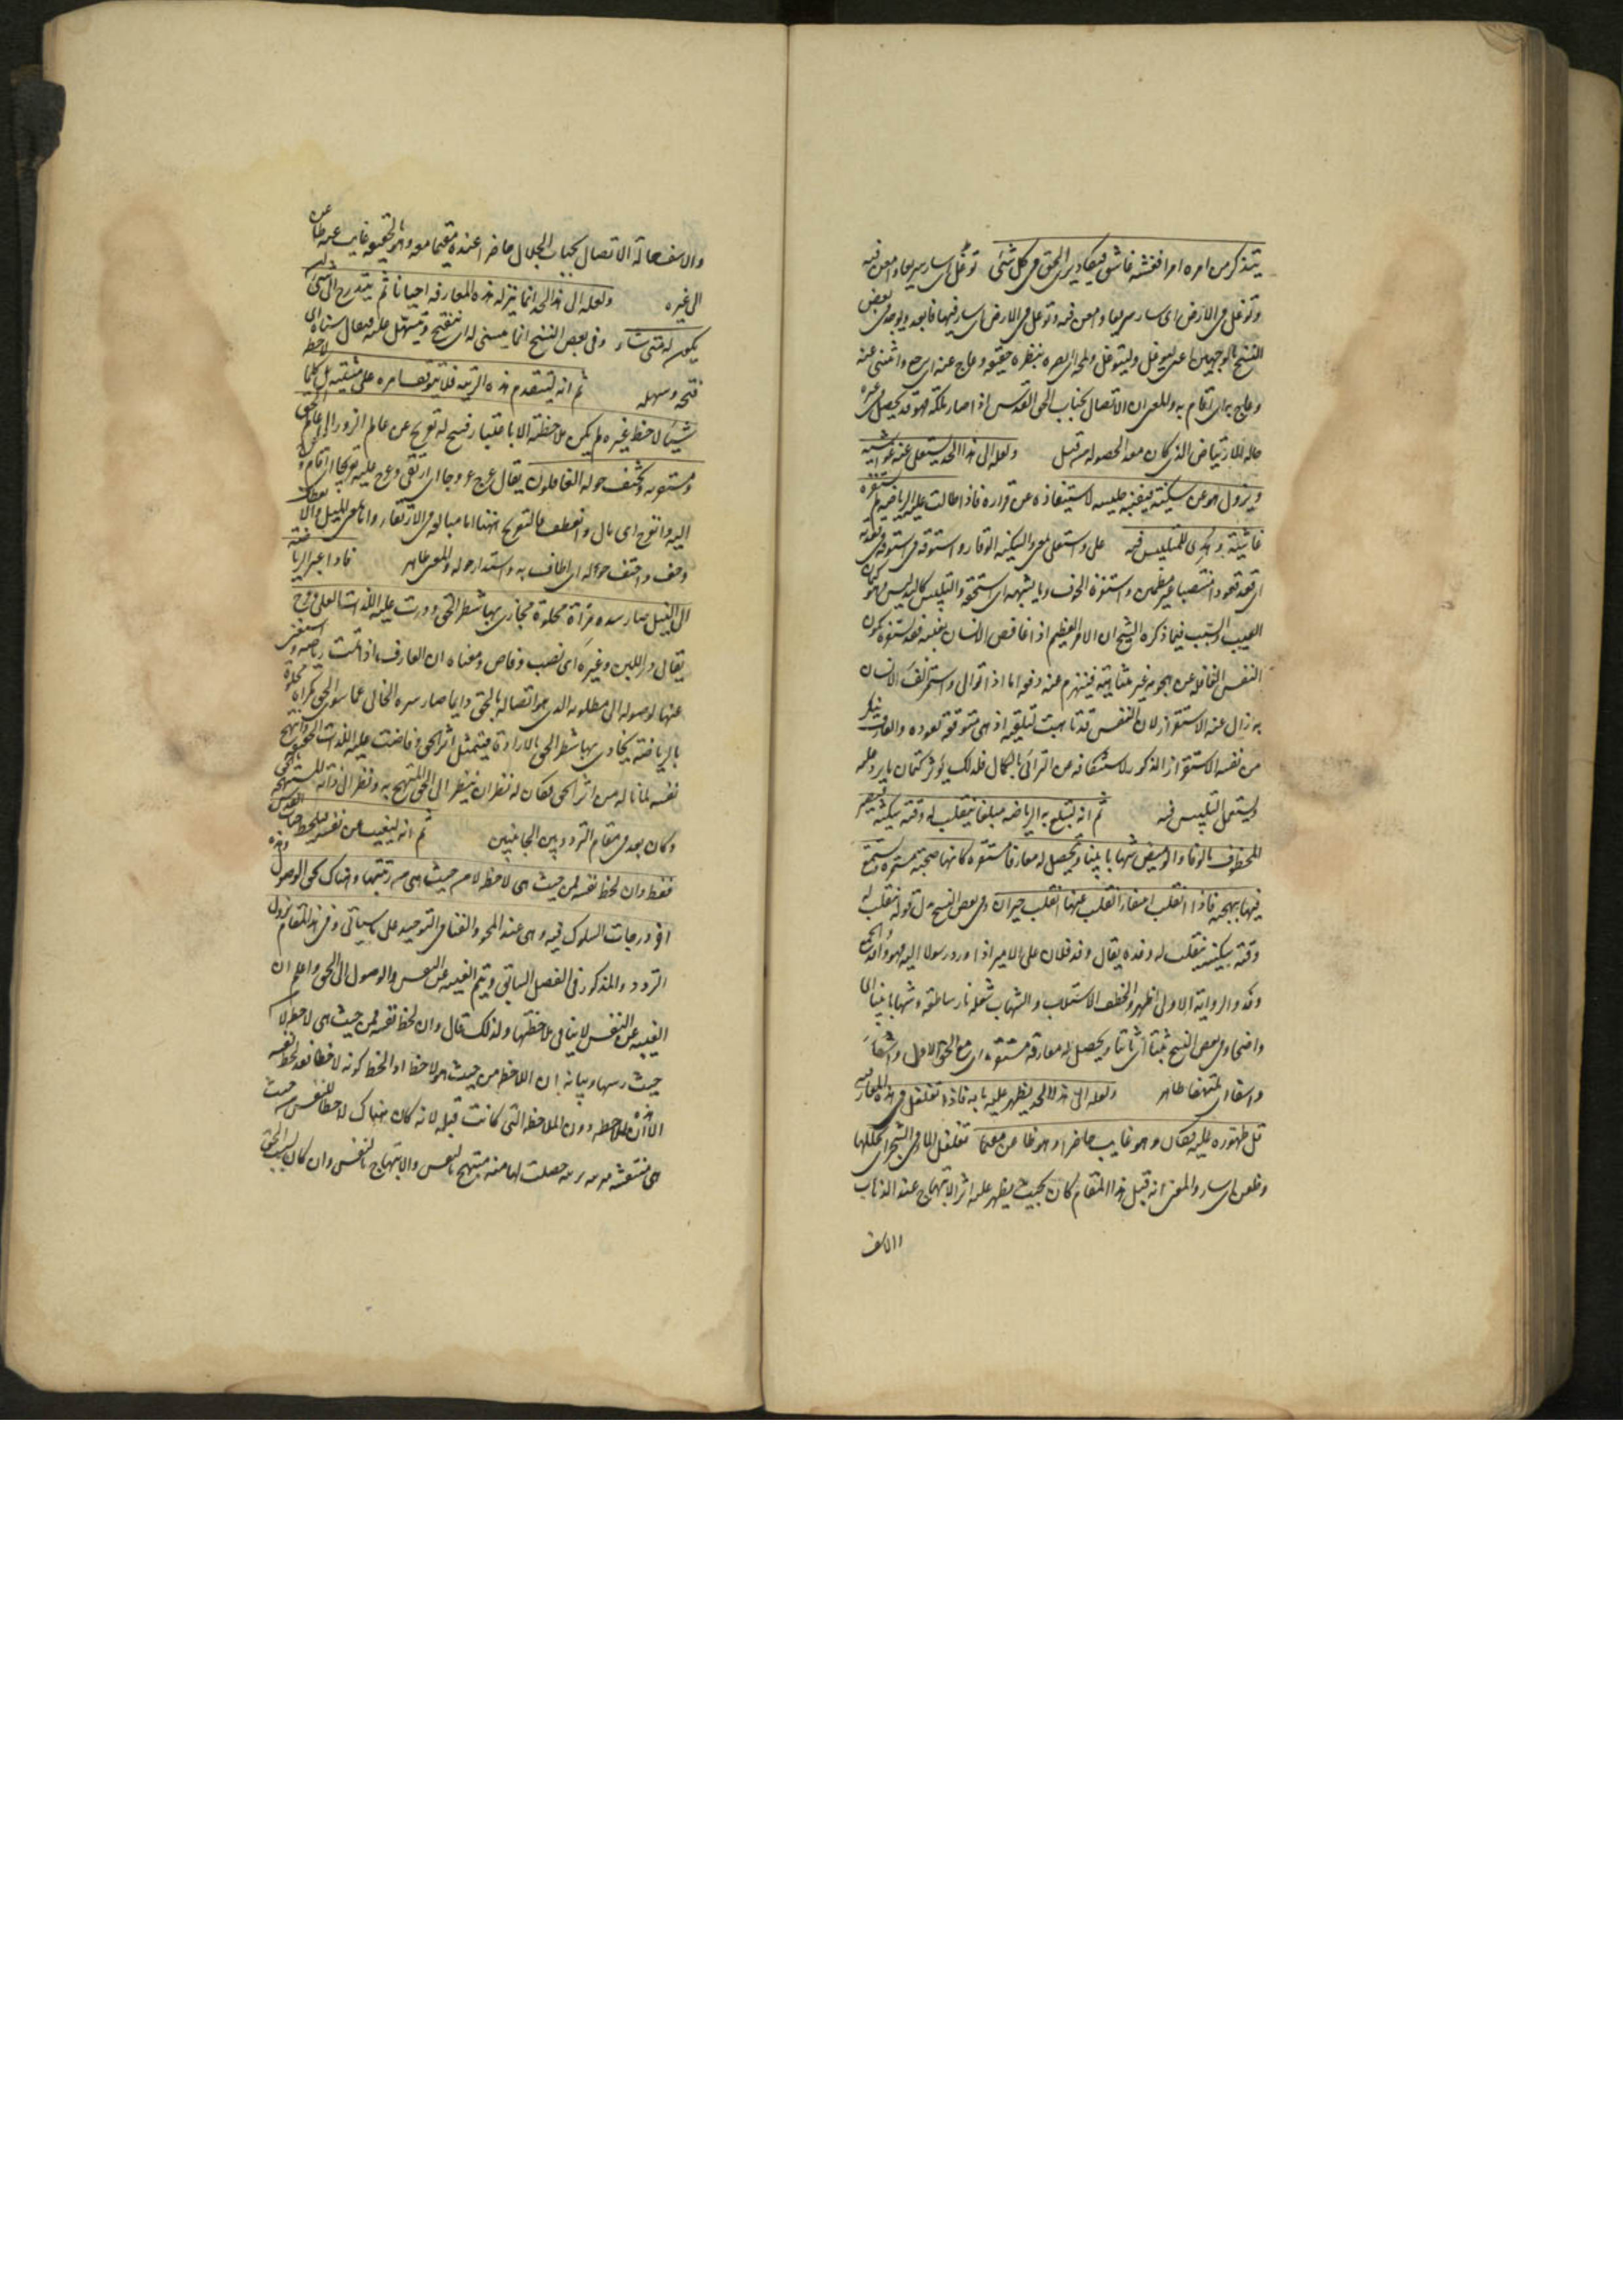 يتذكر من امره امرا فغشيه غاش فيكاد يرى الحق فى كل شئ توغل اى سار سريعا وامعن فيه
وتوغل فى الارض اى سار سريعا وامعن فيه وتوغل فى الارض اى سار فيها فابعد ويوجد فى بعض
النسخ بالوجهين اعنى ليوغل وليتوغل ولمحه اى ابصره بنظره خفيفة وعاج عنه اى رجع وانثنى عنه
وعاج به اى اقام به والمعنى ان الاتصال بجناب القدس اذا صار ملكة فهو قد يحصل فى غير
حالة الارتياض الذى كان معدا لحصوله من قبل ولعله الى هذا الحد يستعلى عنه غواشيه
ويزول هو عن سكينته فيتنبه جليسه لاستيفازه عن قراره فاذا طالت عليه الرياضة لم يستفزه
غاشية وهدى للتلبيس فيه علا واستعلى بمعنى والسكينة الوقار واستوفز فى
اى قعد قعودا منتصبا غير مطمئن واستفزه الخوف وما يشبهه اى استخفه والتلبيس كالتدليس وهو كتمان
العيب والسبب فيما ذكره الشيخ ان الامر العظيم اذا غافص الانسان بغتة فقد استفزه لكون
النفس الغافلة عن هجومه غير متأهبة فينهزم عنه دفعة اما اذا توالى واستمر الف الانسان
به زال عنه الاستفزاز لان النفس قد تأهبت لتلقيه اذ هى متوقعة لعوده والعارف ينكر
من نفسه الاستفزاز المذكور لاستنكافه من الترائى بالكمال فلذلك يؤثر كتمان ما يرد عليه
ويستعمل التلبيس فيه ثم انه لتبلغ به الرياضة مبلغا ينقلب له وقته سكينة فيصير
المخطوف مالوفا والوميض شهابا بينا ويحصل له معارفة مستقرة كانها صحبة مستمرة ويستمتع
فيها ببهجته فاذا انقلب عنها انقلب حيران وفى بعض النسخ بدل قوله ينقلب له
وقته سكينة ينقلب له وفده يقال وفد فلان على الامير اذا ورد رسولا اليه فهو وافد والجمع
وفد والرواية الاولى اظهر والخطف الاستلاب والشهاب شعلة نار ساطعة وشهابا بينا اى
واضحا وفى بعض النسخ ثبتا اى ثابتا ويحصل له معارفة مستقرة اى مع الحق الاول
واسفا اى متلهفا ظاهر ولعله الى هذا الحد يظهر عليه ما به فاذا تغلغل فى هذه المعارفة
قل ظهوره عليه فكان وهو غايب حاضرا وهو ظاعن مقيما تغلغل الماء فى الشجر اى تخللها
وظعن اى سار والمعنى انه قبل هذا المقام كان بحيث يظهر عليه اثر الابتهاج عند الذهاب
والاسف
والاسف حالة الاتصال بجناب الجلال حاضرا عنده مقيما معه وهو بالحقيقة غايب عنه ظاعن
الى غيره ولعله الى هذا الحد انما يتيسر له هذه المعارفة احيانا ثم يتدرج الى ان
يكون له متى شاء وفى بعض النسخ انما يتسنى له اى ينفتح ويتسهل عليه يقال سناه اى
فتحه وسهله ثم انه ليتقدم هذه الرتبة فلا يتوقف امره على مشيته بل كلما لاحظ
شيئا لاحظ غيره وان لم يكن ملاحظته للاعتبار فيسنح له تعريج عن عالم الزور الى عالم الحق
مستقر به ويحتف حوله الغافلون يقال عرج عروجا اى ارتقى وعرج عليه تعريجا اى اقام
اليه وانعرج اى مال وانعطف فالتعريج ههنا اما مبالغة فى الارتقاء واما بمعنى الميل والانعطاف
وحف واحتف حوله اى اطاف به واستدار حوله والمعنى ظاهر فاذا عبر الرياضة
الى النيل صار سره مرآة مجلوة محاذى بها شطر الحق ودرت عليه اللذات العلى وفرح
يقال در اللبن وغيره اى انصب وفاض ومعناه ان العارف اذا تمت رياضته واستغنى
عنها لوصوله الى مطلوبه الذى هو اتصاله بالحق دايما صار سره الخالى عما سوى الحق كمرآة مجلوة
بالرياضة يحاذى بها شطر الحق بالارادة فيتمثل اثر الحق وفاضت عليه اللذات الحقيقية وابتهج
نفسه لما ناله من اثر الحق فكان له نظران نظر الى الحق المبتهج به ونظر الى ذاته المبتهجة بالحق
وكان بعد فى مقام التردد بين الجانبين ثم انه ليغيب عن نفسه فيلحظ جناب القدس
فقط وان لحظ نفسه فمن حيث هى لاحظة لا من حيث هى بزينتها وهناك يحق الوصول وهذه
آخر درجات السلوك فيه وهى عند المحو والفناء فى التوحيد على ما سياتى وفى هذا المقام يزول
التردد المذكور فى الفصل السابق ويتم الغيبة عن النفس والوصول الى الحق واعلم ان
الغيبة عن النفس لا ينافى ملاحظتها ولذلك قال وان لحظ نفسه فمن حيث هى لاحظة لا
حيث وبيانه ان اللاحظ من حيث هو لاحظ اذا لحظ كونه لاحظا فقد لحظ نفسه
الا ان هذه الملاحظة دون الملاحظة التى كانت قبله لانه كان هناك لاحظا للنفس من حيث
هى منتقشة بالحق متزينة بزينة حصلت لها منه مبتهج بالنفس والابتهاج بالنفس وان كان بسبب الحق